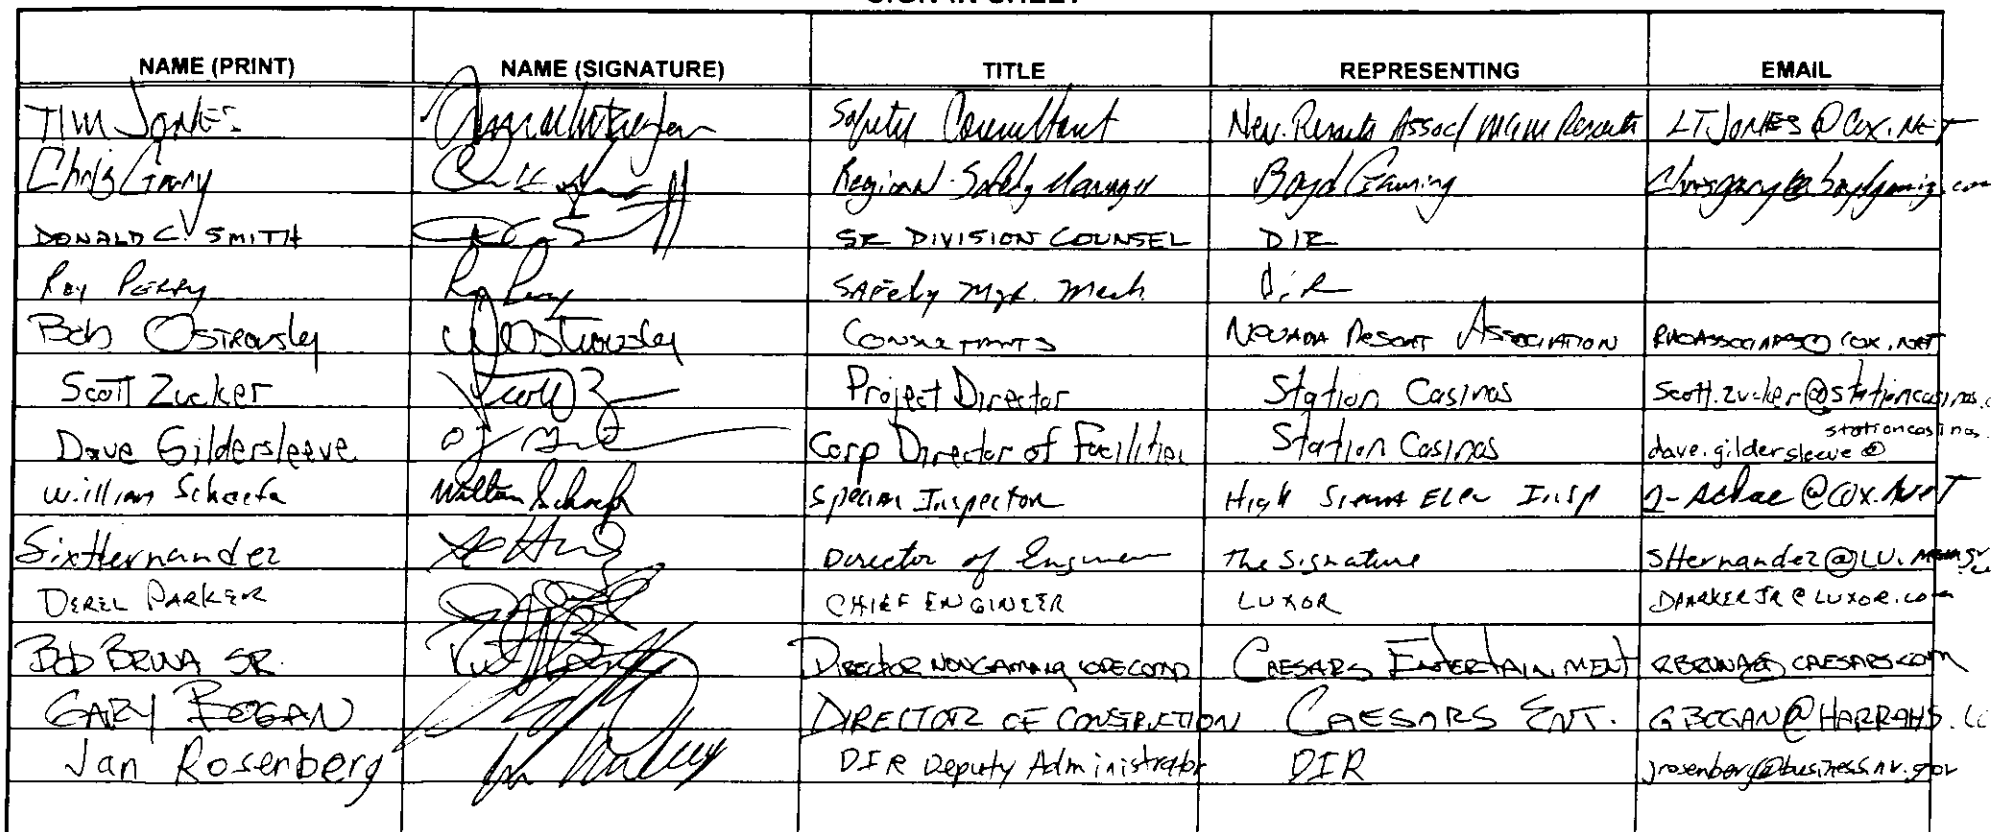 SIGN IN SHEET
NAME (PRINT) NAME (SIGNATURE) TITLE REPRESENTING EMAIL
TIM JONES Safety Consultant Nev. Resorts Assoc/ MGM Resorts LTJONES@COX.NET
Chris Gary Regional Safety Manager Boyd Gaming chrisgary@boydgaming.com
DONALD C. SMITH SR DIVISION COUNSEL DIR
Roy PERRY SAFety Mgr. Mech DiR
Bob OSTROVSKY CONSULTANTS NEVADA RESORT ASSOCIATION RHOASSOCIATES@COX.NET
Scott Zucker Project Director Station Casinos Scott.zucker@stationcasinos.c
Dave Gildersleeve Corp Director of Facilities Station Casinos dave.gildersleeve@ stationcasinos.
William Schaefa William Schaefa Special Inspector High Sierra Elev Insp @COX.NET
Sixt Hernandez Director of The Signature SHernandez@LV.
DEREL PARKER CHIEF ENGINEER LUXOR DPARKERJR@LUXOR.com
Bob BRUNA SR. DIRECTOR NONGAMING CAESARS ENTERTAINMENT RBRUNA@CAESARS.COM
GARY BOGAN DIRECTOR OF CONSTRUCTION CAESARS ENT. GBOGAN@HARRAHS.CO
Jan Rosenberg DIR Deputy Administrator DIR jrosenberg@business.nv.gov